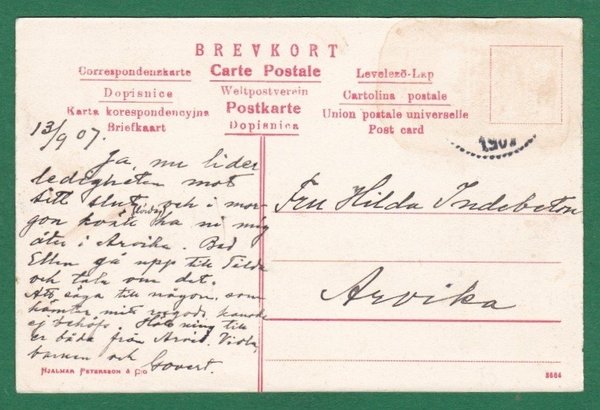 BREVKORT
Correspondenzkarte Carte Postale Levelező-Lap
Dopisnice Weltpostverein Cartolina postale
Karta korespondencyjna Postkarte Union postale universelle
Briefkaart Dopisnica Post card
1907
13/9 07.
Ja nu lider
ledigheten mot
sitt slut, och i mor-
gon (lördag) kväll ha ni mig
åter i Arvika. Bed
Ellen gå upp till Tilda
och tala om det.
Att säga till någon, som
hämtar mitt
ej behöfs. Hälsning till
er båda från Arvid, Viola,
barnen och
Fru Hilda Indebetou
Arvika
HJALMAR PETERSSON & CO
5664